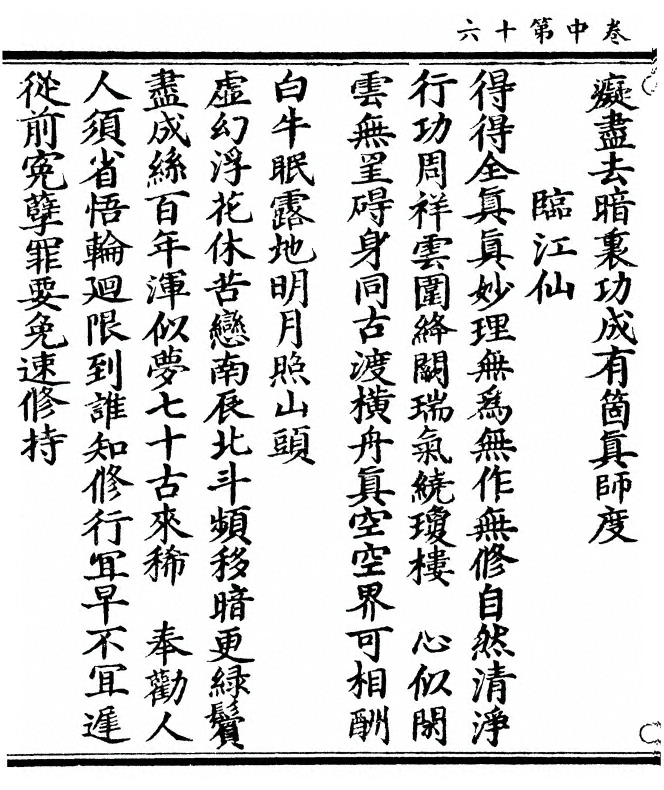 卷中第十六
癡盡去暗裏功成有箇眞師度
臨江仙
得得全眞眞妙理無爲無作無修自然清淨
行功周祥雲圍絳闕瑞氣繞瓊樓　心似閑
雲無罣碍身同古渡橫舟眞空空界可相酬
白牛眠露地明月照山頭
虛幻浮花休苦戀南辰北斗頻移暗更綠鬢
盡成絲百年渾似夢七十古來稀　奉勸人
人須省悟輪廻限到誰知修行冝早不冝遲
從前冤孽罪要免速修持